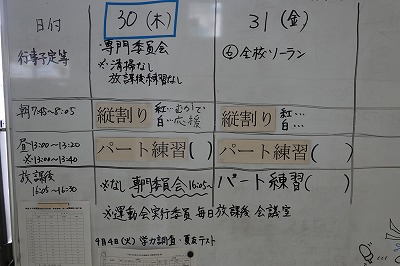 日付
30 (木)
31 (金)
行事予定等
・専門委員会
※清掃なし
放課後練習なし
⑥全校ソーラン
朝7:45~8:05
縦割り
紅…むかで
白…応援
縦割り
紅…
白…
昼13:00~13:20
※13:00~13:40
パート練習( )
パート練習( )
放課後
16:05~16:30
※なし 専門委員会16:05~
パート練習( )
※運動会実行委員 毎日放課後 会議室
9月4日(火) 学力調査・夏友テスト